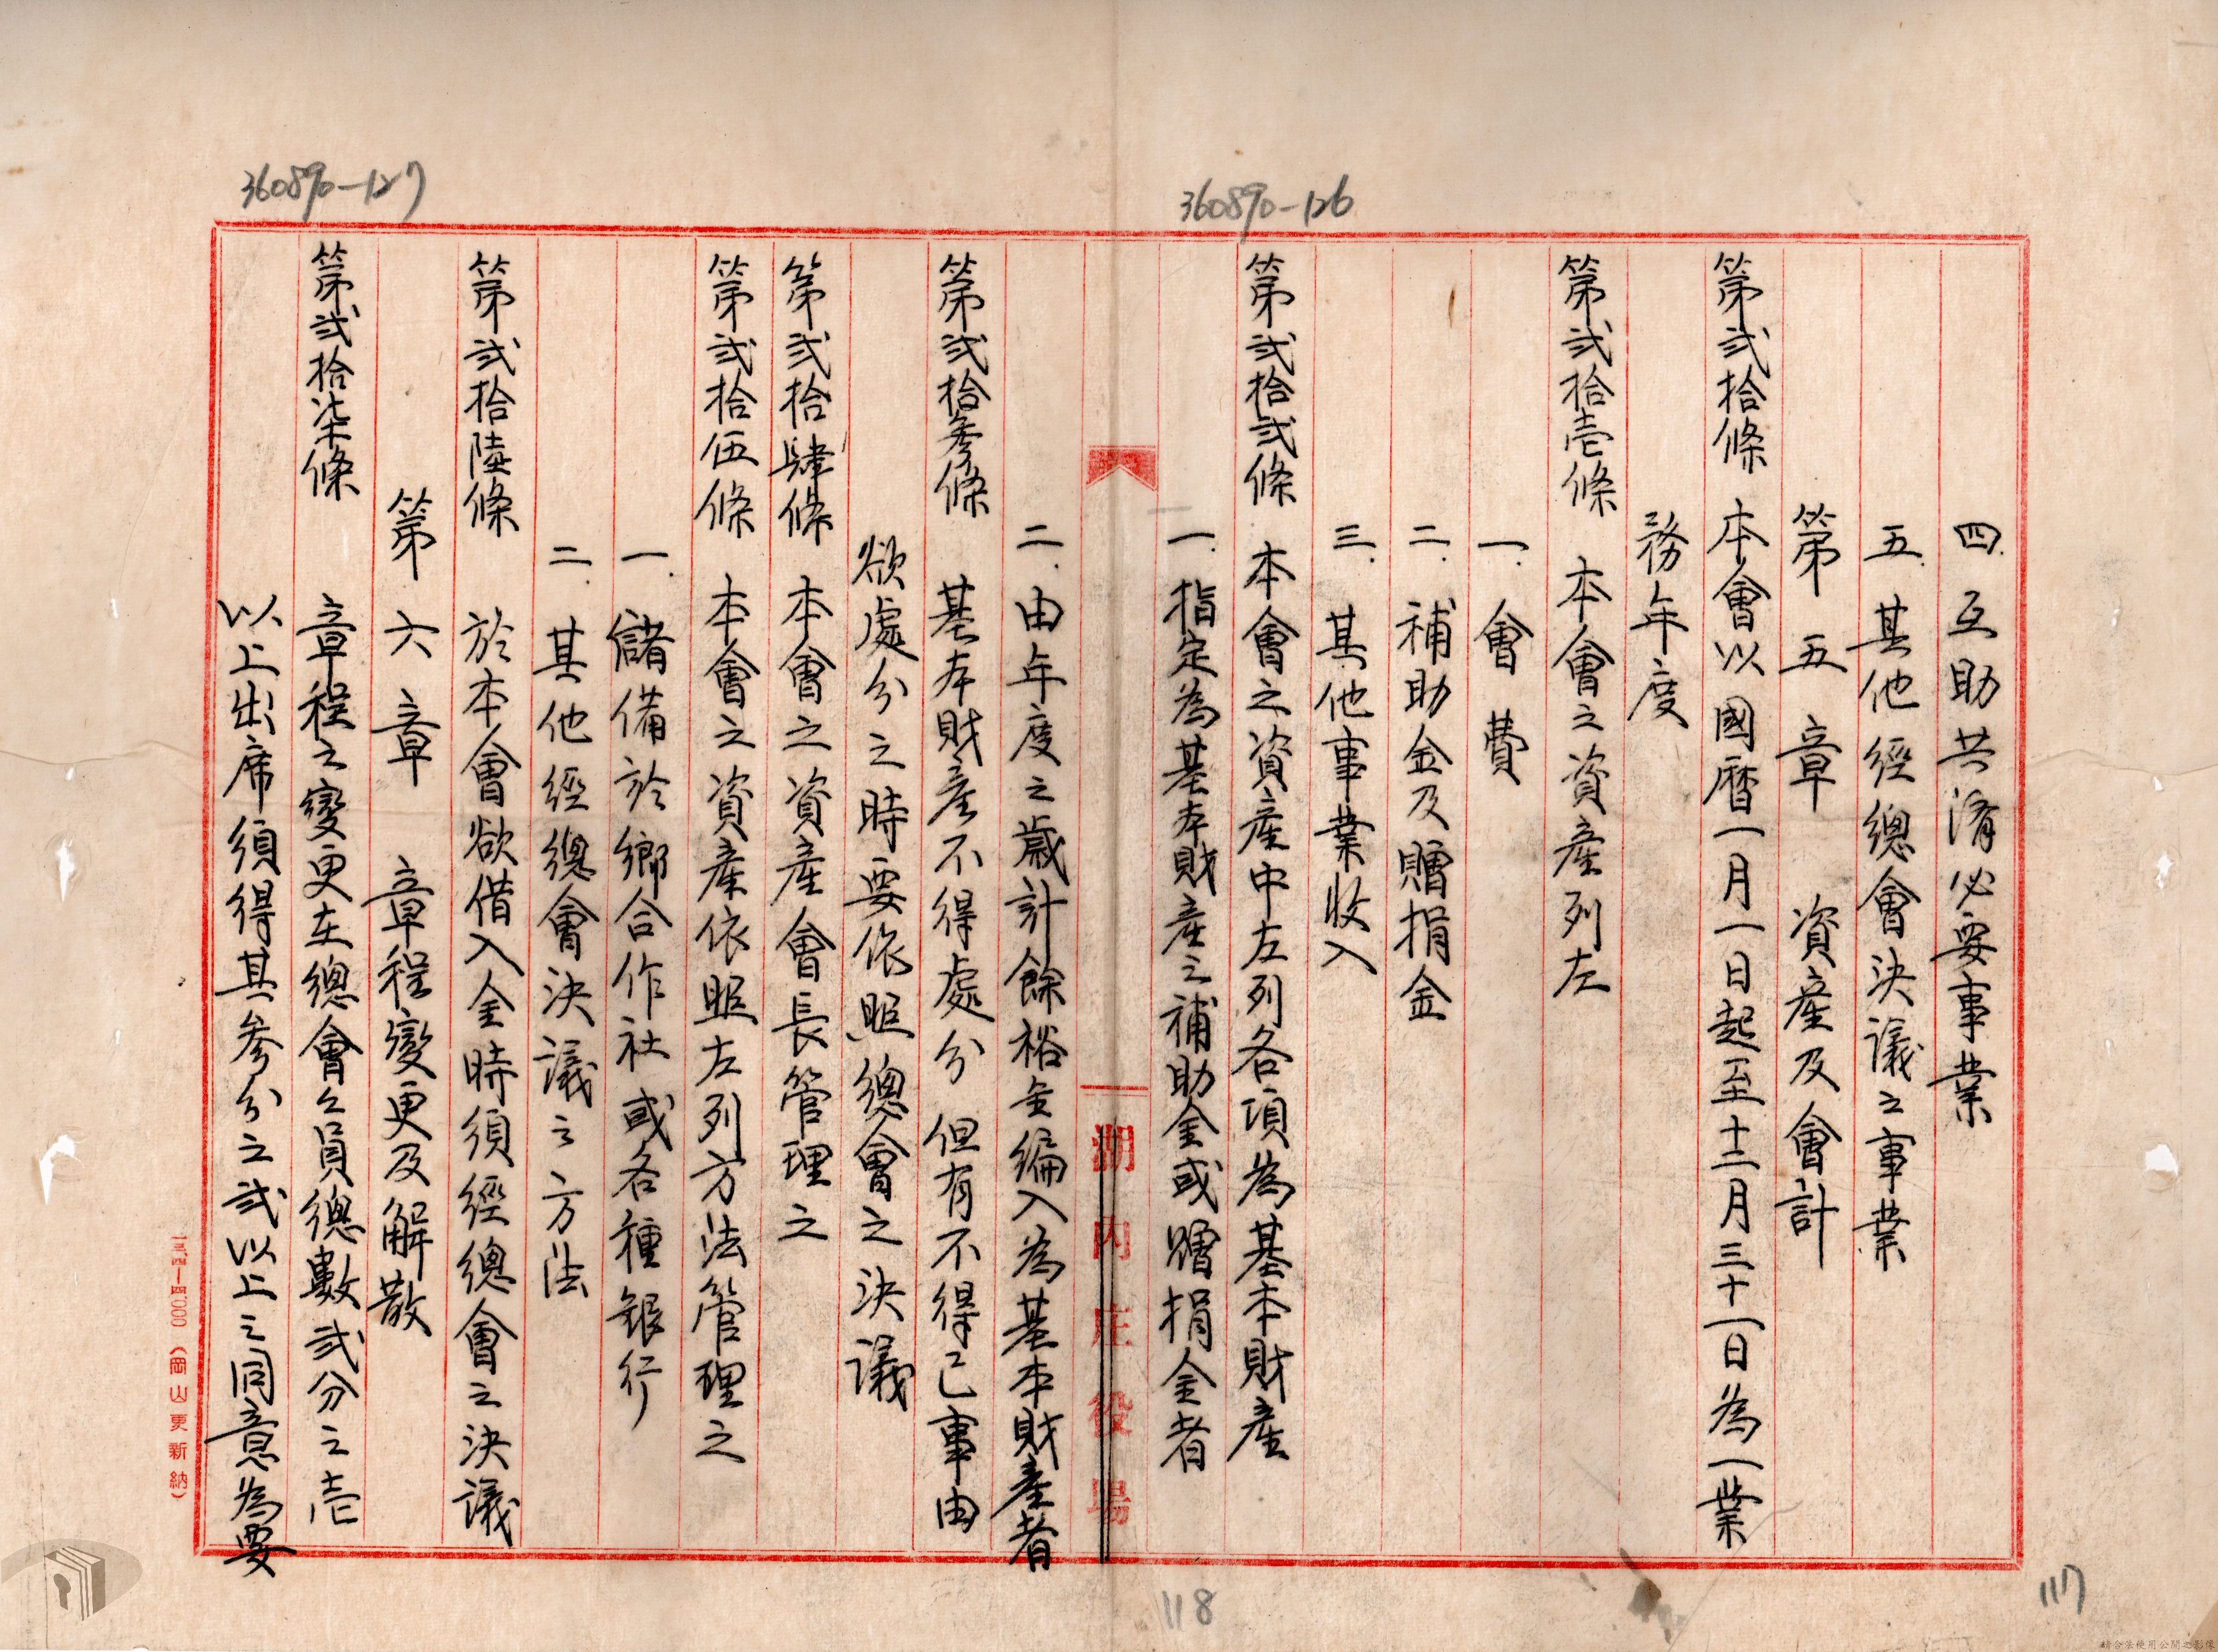 360890-126
四.互助共済必要事業
五.其他經總會決議之事業
第五章 資産及會計
第弍拾條 本會以國曆一月一日起至十二月三十一日為一業
務年度
第弍拾壱條 本會之資産列左
一.會費
二.補助金及贈捐金
三.其他事業收入
第弍拾弍條 本會之資産中左列各項為基本財産
一.指定為基本財産之補助金或贈捐金者
湖內庄役場
360890-127
二.由年度之歲計餘裕金編入為基本財産者
第弍拾參條 基本財産不得處分 但有不得已事由
欲處分之時要依照總會之決議
第弍拾肆條 本會之資産會長管理之
第弍拾伍條 本會之資産依照左列方法管理之
一.儲備於鄉合作社或各種銀行
二.其他經總會決議之方法
第弍拾陸條 於本會欲借入金時須經總會之決議
第六章 章程變更及解散
第弍拾柒條 章程之變更在總會之員總數弍分之壱
以上出席須得其參分之弍以上之同意為要
一三、四—四、〇〇〇(岡山更新納)
118
117
請合法使用公開之影像